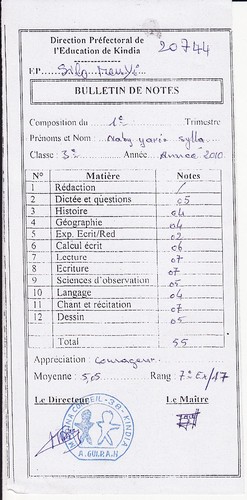 Direction Préfectoral de
l'Education de Kindia
20744
EP
BULLETIN DE NOTES
Composition du 1e Trimestre
Prénoms et Nom : Naby Yarie Sylla
Classe : 3e Année Année 2010
N° Matière Notes
1 Rédaction /
2 Dictée et questions 05
3 Histoire 04
4 Géographie 04
5 Exp. Ecrit/Red 02
6 Calcul écrit 06
7 Lecture 07
8 Ecriture 07
9 Sciences d'observation 05
10 Langage 04
11 Chant et récitation 07
12 Dessin 05
Total 55
Appréciation : Courageux
Moyenne : 5,05 Rang 7e Ex/17
Le Directeur Le Maître
KINDIA